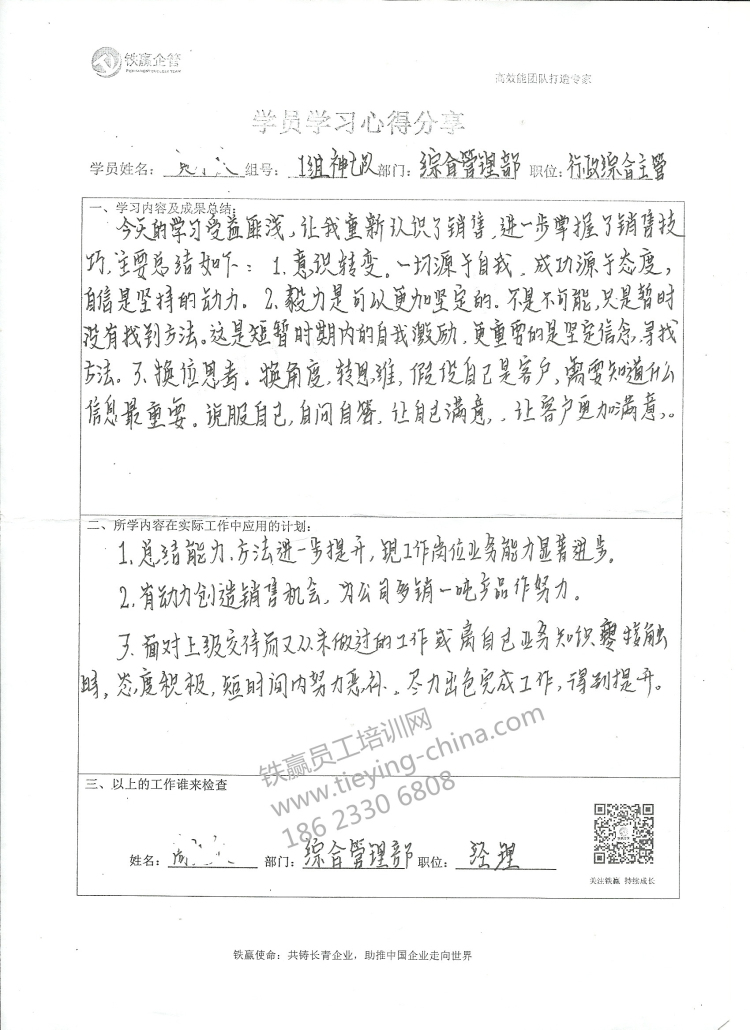 铁赢企管
高效能团队打造专家
学员学习心得分享
学员姓名： 组号： 1组神 队 部门：综合管理部 职位：行政综合主管
一、学习内容及成果总结：
今天的学习受益匪浅，让我重新认识了销售，进一步掌握了销售技
巧，主要总结如下：1.意识转变。一切源于自我，成功源于态度，
自信是坚持的动力。2.毅力是可以更加坚定的。不是不可能，只是暂时
没有找到方法。这是短暂时期内的自我激励，更重要的是坚定信念，寻找
方法。3.换位思考。换角度，转思维，假设自己是客户，需要知道什么
信息最重要。说服自己，自问自答，让自己满意，让客户更加满意。
二、所学内容在实际工作中应用的计划：
1.总结能力、方法进一步提升，现工作岗位业务能力显著进步。
2.有动力创造销售机会，为公司多销一吨产品作努力。
3.面对上级交待而又从未做过的工作或离自己业务知识零接触
时，态度积极，短时间内努力恶补。尽力出色完成工作，得到提升。
铁赢员工培训网
www.tieying-china.com
186 2330 6808
三、以上的工作谁来检查
姓名： 部门：综合管理部 职位：经理
关注铁赢 持续成长
铁赢使命：共铸长青企业，助推中国企业走向世界